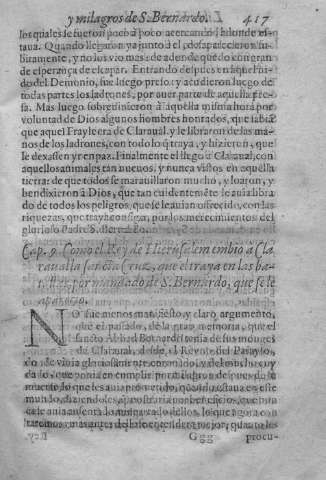 y milagros de S. Bernardo. 417
los quales se fueron poco a poco acercando a donde es-
taua. Quando llegaron ya junto a el, desaparecieron su-
bitamente, y no los vio mas: de adonde quedo con gran-
de esperança de escapar. Entrando despues en aquella
del Demonio, fue luego preso: y acudieron luego de
todas partes los ladrones, por auer parte de aquella pre-
sa. Mas luego sobreuinieron a aquella misma hora por
voluntad de Dios algunos hombres honrados, que sabian
que aquel Frayle era de Claraual, y le libraron de las ma-
nos de los ladrones, con todo lo que traya, y hizieron, que
le dexassen yr en paz. Finalmente el llego a Claraual, con
aquellos animales tan nueuos, y nunca vistos en aquella
tierra: de que todos se marauillaron mucho, y loaron, y
bendixeron a Dios, que tan euidentemēte le auia libra-
do de todos los peligros, que se le auian ofrecido, con las
riquezas, que traya consigo, por los merecimientos del
glorioso Padre S. Bernardo.
Cap. 9. Como el Rey de Hierusalem embio a Cla
raual la Cruz, que el traya en las ba-
por mandado de S. Bernardo, que se le
aparecio.
NO fue menos manifiesto, y claro argumento,
que el passado, de la gran memoria, que el
sancto Abbad Bernardo tenia de sus monges
de Claraual, desde el Reyno del Parayso,
do de viuia gloriosamente coronado, y del mucho cuy
dado que ponia en cumplir por milagros despues de
muerto lo que les auia prometido, quando estaua en este
mundo, diziendoles,
lo que agora con
taremos, mas antes
Rey Ggg procu-